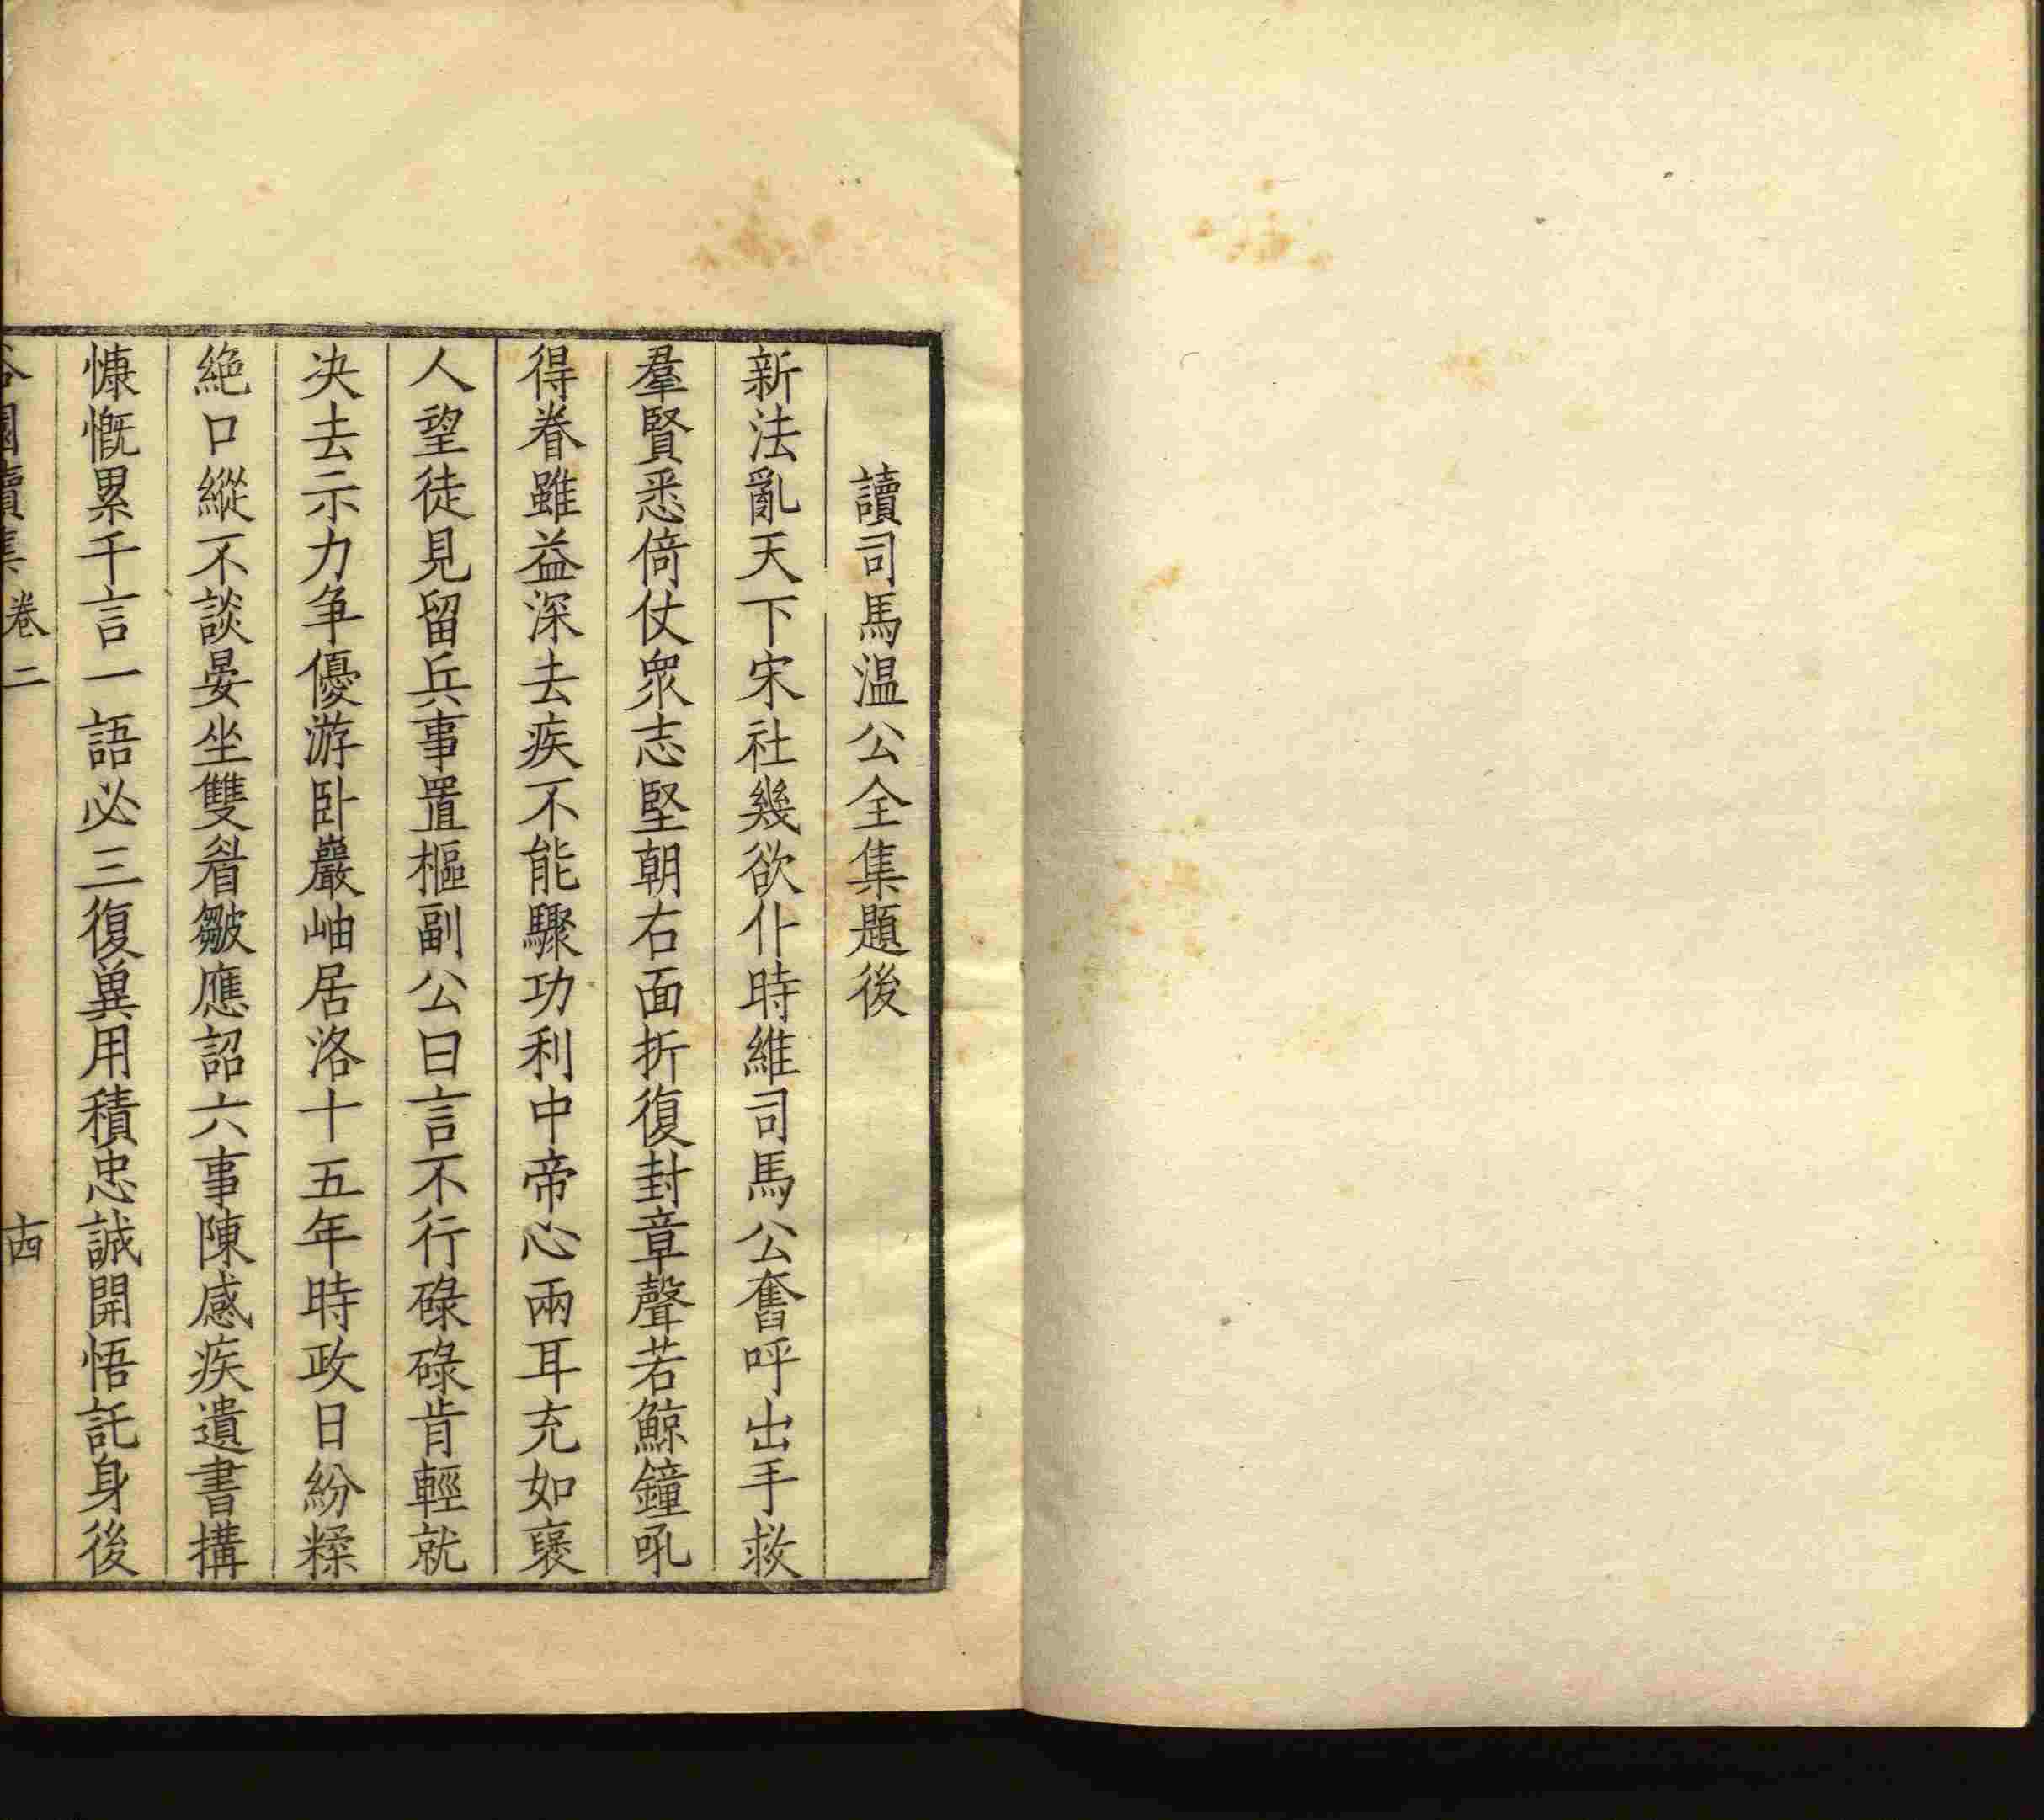 讀司馬温公全集題後
新法亂天下宋社幾欲仆時維司馬公奮呼出手救
羣賢悉倚仗眾志堅朝右面折復封章聲若鯨鐘吼
得眷雖益深去疾不能驟功利中帝心兩耳充如褎
人望徒見留兵事置樞副公曰言不行碌碌肯輕就
決去示力争優游卧巖岫居洛十五年時政日紛糅
絶口縱不談晏坐雙眉皺應詔六事陳感疾遺書搆
慷慨累千言一語必三復兾用積忠誠開悟託身後
園續集 卷二 十四